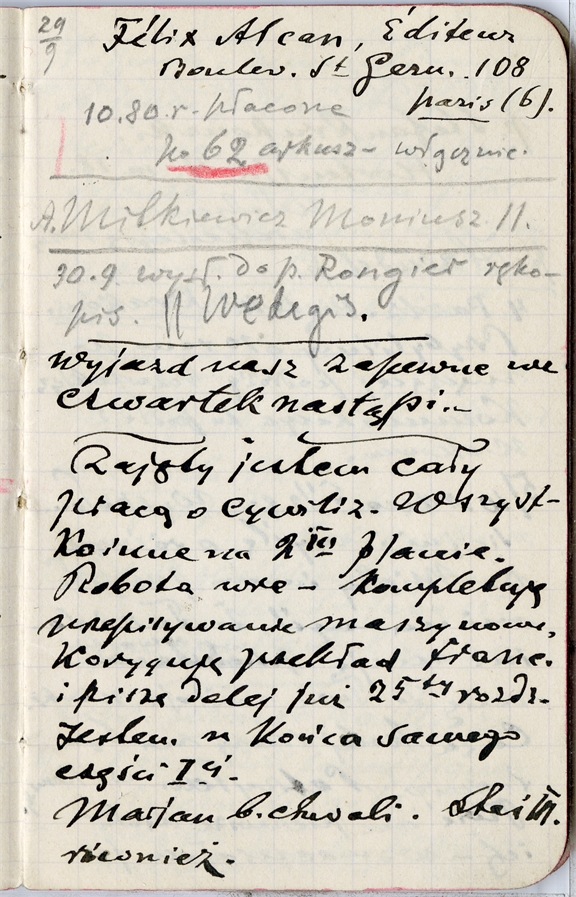 29/9
Félix Alcan, Éditeur
Boulev. St Germ. 108
paris (6).
10.80 r. płacone
po 62 arkusz – włącznie.
A. Milkiewicz Moniusz 11.
30.9 wysł. do p. Rongier ręko-
pis. II Wędegis.
Wyjazd nasz zapewne we
czwartek nastąpi..
Zajęty jestem cały
pracą o cywiliz. Wszyst-
ko inne na 2im planie.
Robota wre – kompletuję
przepisywanie maszynowe,
koryguję przekład franc.
i piszę dalej już 25ty rozdz.
Jestem u końca samego
części I ej.
Marjan b. chwali. Staś
również.